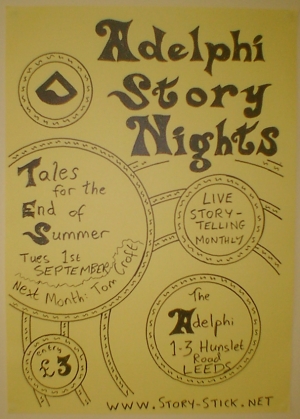 Adelphi
Story
Nights
Tales
for the
End of
Summer
Tues 1st
SEPTEMBER
Next Month: Tom Croft
LIVE
STORY-
TELLING
MONTHLY
The
Adelphi
1-3 Hunslet
Road
LEEDS
entry
£3
WWW.STORY-STICK.NET